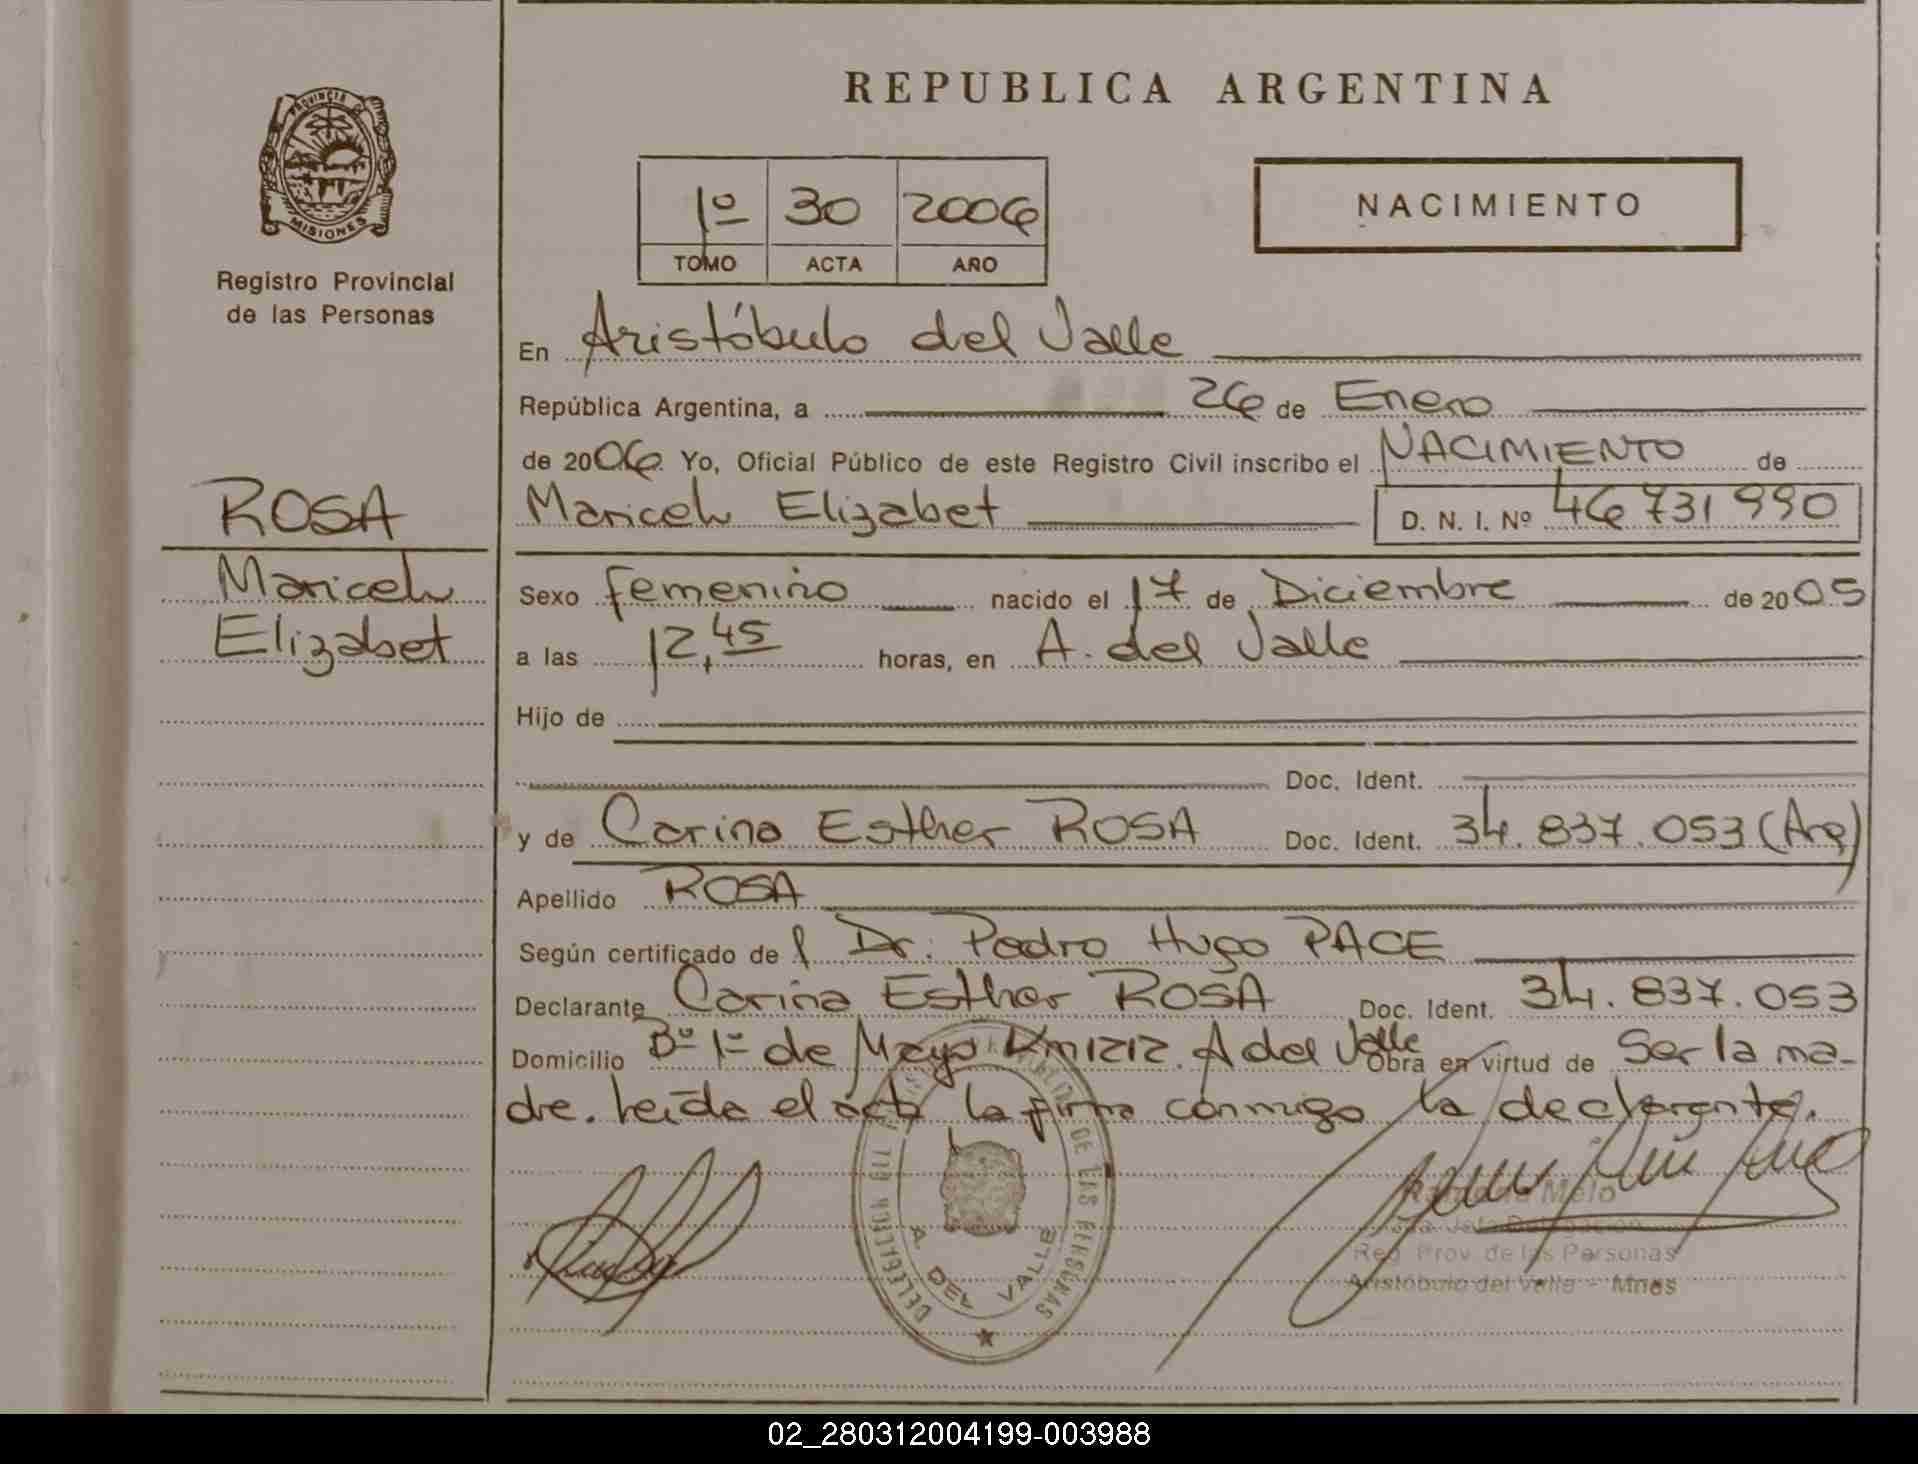 REPUBLICA ARGENTINA
PROVINCIA DE
MISIONES
Registro Provincial
de las Personas
1º 30 2006
TOMO ACTA AÑO
NACIMIENTO
En Aristóbulo del Valle
República Argentina, a 26 de Enero
de 2006 Yo, Oficial Público de este Registro Civil inscribo el NACIMIENTO de
ROSA
Maricel Elizabet D. N. I. Nº 46 731 990
Maricel
Elizabet
Sexo femenino nacido el 17 de Diciembre de 2005
a las 12,45 horas, en A. del Valle
Hijo de
Doc. Ident.
y de Carina Esther ROSA Doc. Ident. 34.837.053 (Arg)
Apellido ROSA
Según certificado de f Dr. Pedro Hugo PACE
Declarante Carina Esther ROSA Doc. Ident. 34.837.053
Domicilio Bº 1º de Mayo Km 1212. A del Valle Obra en virtud de Ser la ma-
dre. Leída el acta la firma conmigo la declarante.
DE LAS PERSONAS
A. DEL VALLE
Melo
Reg. Prov. de las Personas
Aristóbulo del Valle - Mnes
02_280312004199-003988